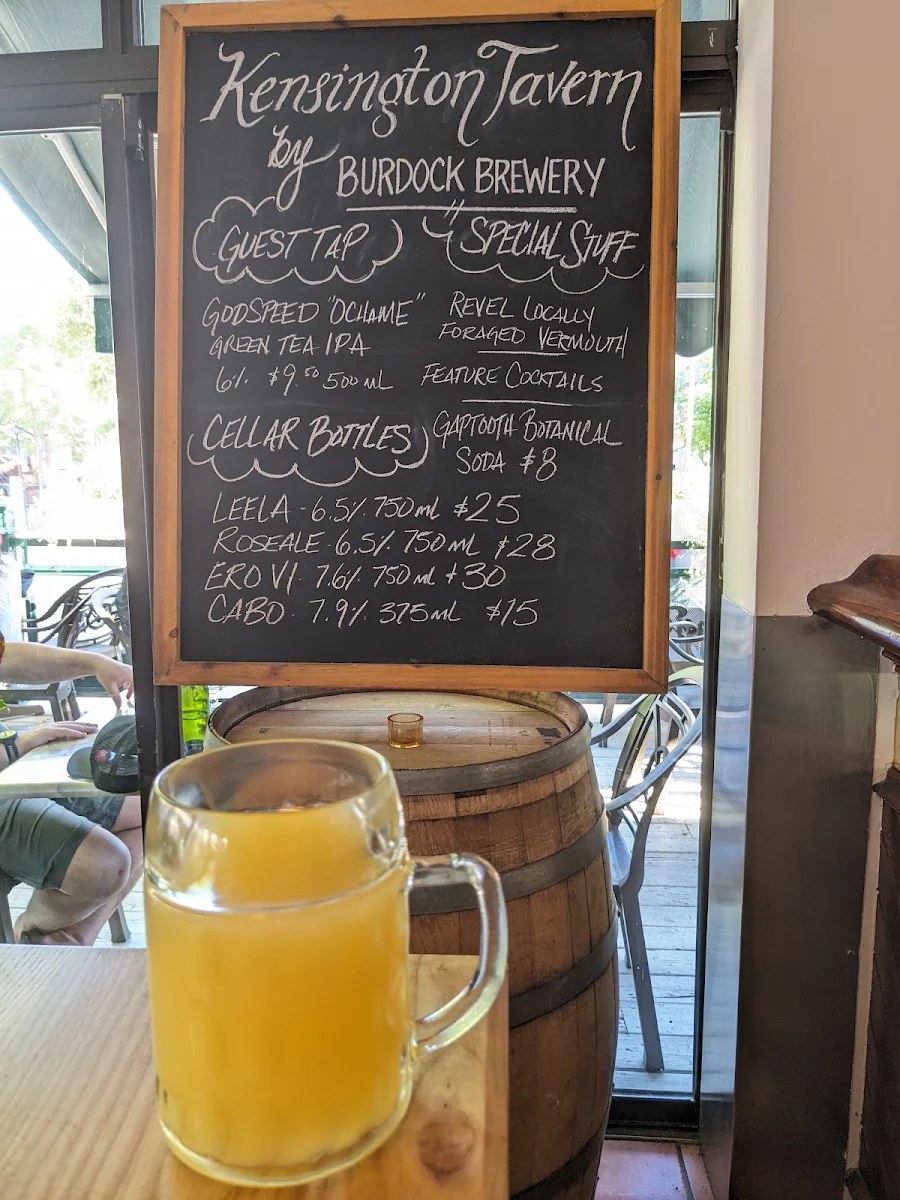 Kensington Tavern
by BURDOCK BREWERY
GUEST TAP
GODSPEED "OCHAME"
GREEN TEA IPA
6% $9.50 500 mL
SPECIAL STUFF
REVEL LOCALLY
FORAGED VERMOUTH
FEATURE COCKTAILS
GAPTOOTH BOTANICAL
SODA $8
CELLAR BOTTLES
LEELA - 6.5% 750 mL $25
ROSEALE - 6.5% 750 mL $28
ERO VI - 7.6% 750 mL $30
CABO - 7.9% 375 mL $15